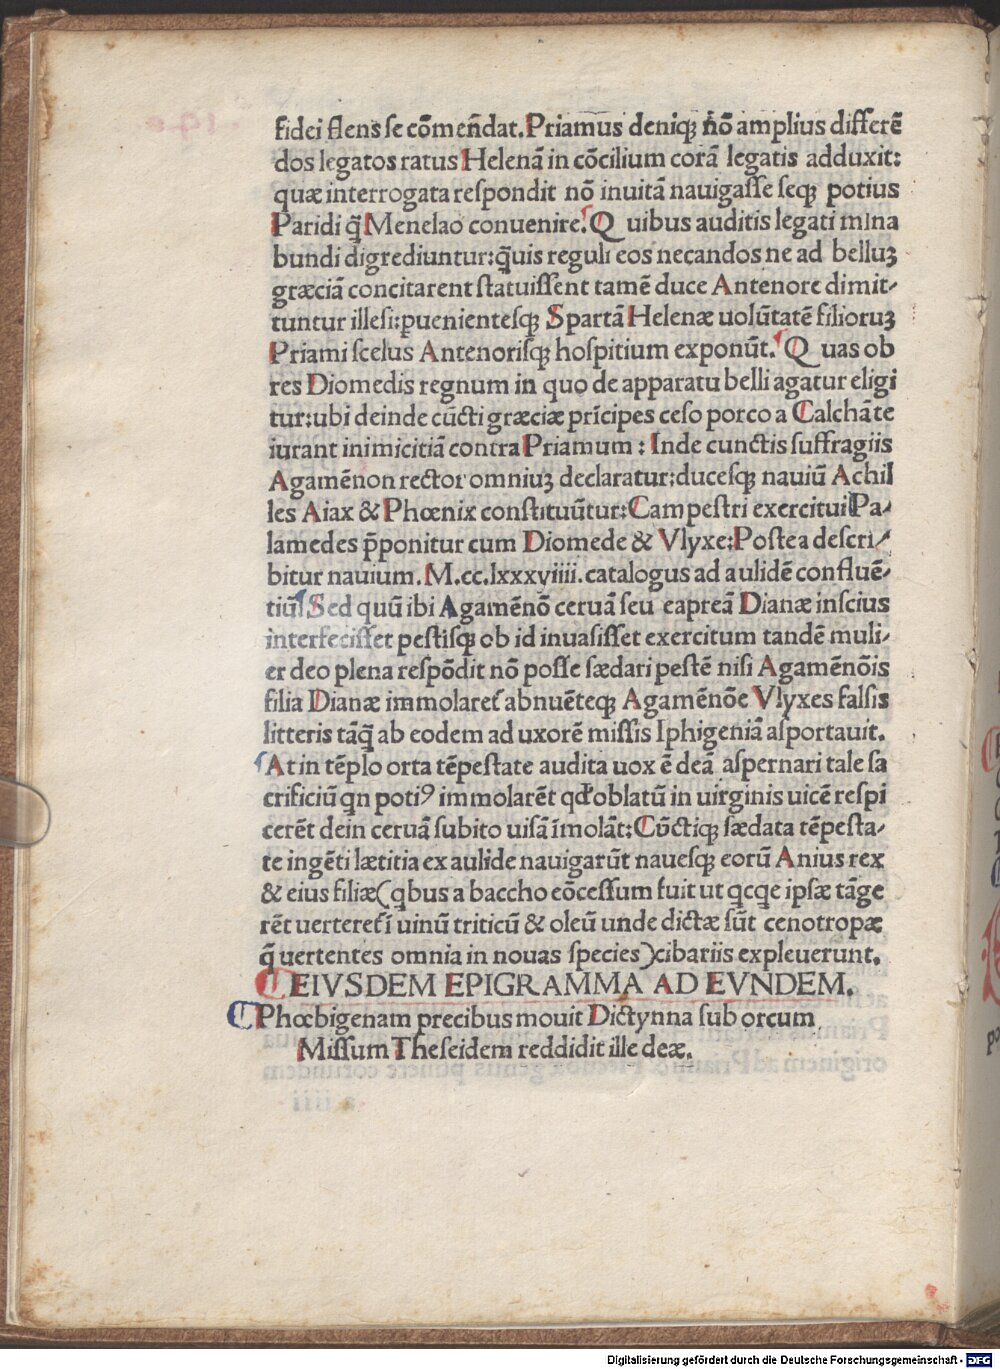 fidei flens se cōmēdat. Priamus deniqꝫ nō amplius differē
dos legatos ratus Helenā in cōcilium corā legatis adduxit:
quæ interrogata respondit nō inuitā nauigasse seqꝫ potius
Paridi q̄ Menelao conuenire. Quibus auditis legati mina
bundi digrediuntur: q̄uis reguli eos necandos ne ad belluꝫ
græciā concitarent statuissent tamē duce Antenore dimit⸗
tuntur illesi: puenientesqꝫ Spartā Helenæ uolūtatē filioruꝫ
Priami scelus Antenorisqꝫ hospitium exponūt. Quas ob
res Diomedis regnum in quo de apparatu belli agatur eligi
tur: ubi deinde cūcti græciæ prīcipes ceso porco a Calchāte
iurant inimicitiā contra Priamum: Inde cunctis suffragiis
Agamēnon rector omniuꝫ declaratur: ducesqꝫ nauiū Achil
les Aiax & Phœnix constituūtur: Campestri exercitui Pa⸗
lamedes p̄ponitur cum Diomede & Vlyxe: Postea descri⸗
bitur nauium. M.cc.lxxxviiii. catalogus ad aulidē confluē⸗
tiū. Sed quū ibi Agamēnō ceruā seu capreā Dianæ inscius
interfecisset pestisqꝫ ob id inuasisset exercitum tandē muli⸗
er deo plena respōdit nō posse sædari pestē nisi Agamēnōis
filia Dianæ immolaret᷑ abnuēteqꝫ Agamēnōe Vlyxes falsis
litteris tāq̄ ab eodem ad uxorē missis Iphigeniā asportauit.
At in tēplo orta tēpestate audita uox ē deā aspernari tale sa
crificiū qn potiꝰ immolarēt qđ oblatū in uirginis uicē respi
cerēt dein ceruā subito uisā īmolāt: Cūctiqꝫ sædata tēpesta⸗
te ingēti lætitia ex aulide nauigarūt nauesqꝫ eorū Anius rex
& eius filiæ (qbus a baccho cōcessum fuit ut qcqe ipsæ tāge
rēt uerteret᷑ ī uinū triticū & oleū unde dictæ sūt cenotropæ
q̄ uertentes omnia in nouas species) cibariis expleuerunt.
EIVSDEM EPIGRAMMA AD EVNDEM.
Phœbigenam precibus mouit Dictynna sub orcum
Missum Theseidem reddidit ille deæ.
Digitalisierung gefördert durch die Deutsche Forschungsgemeinschaft - DFG